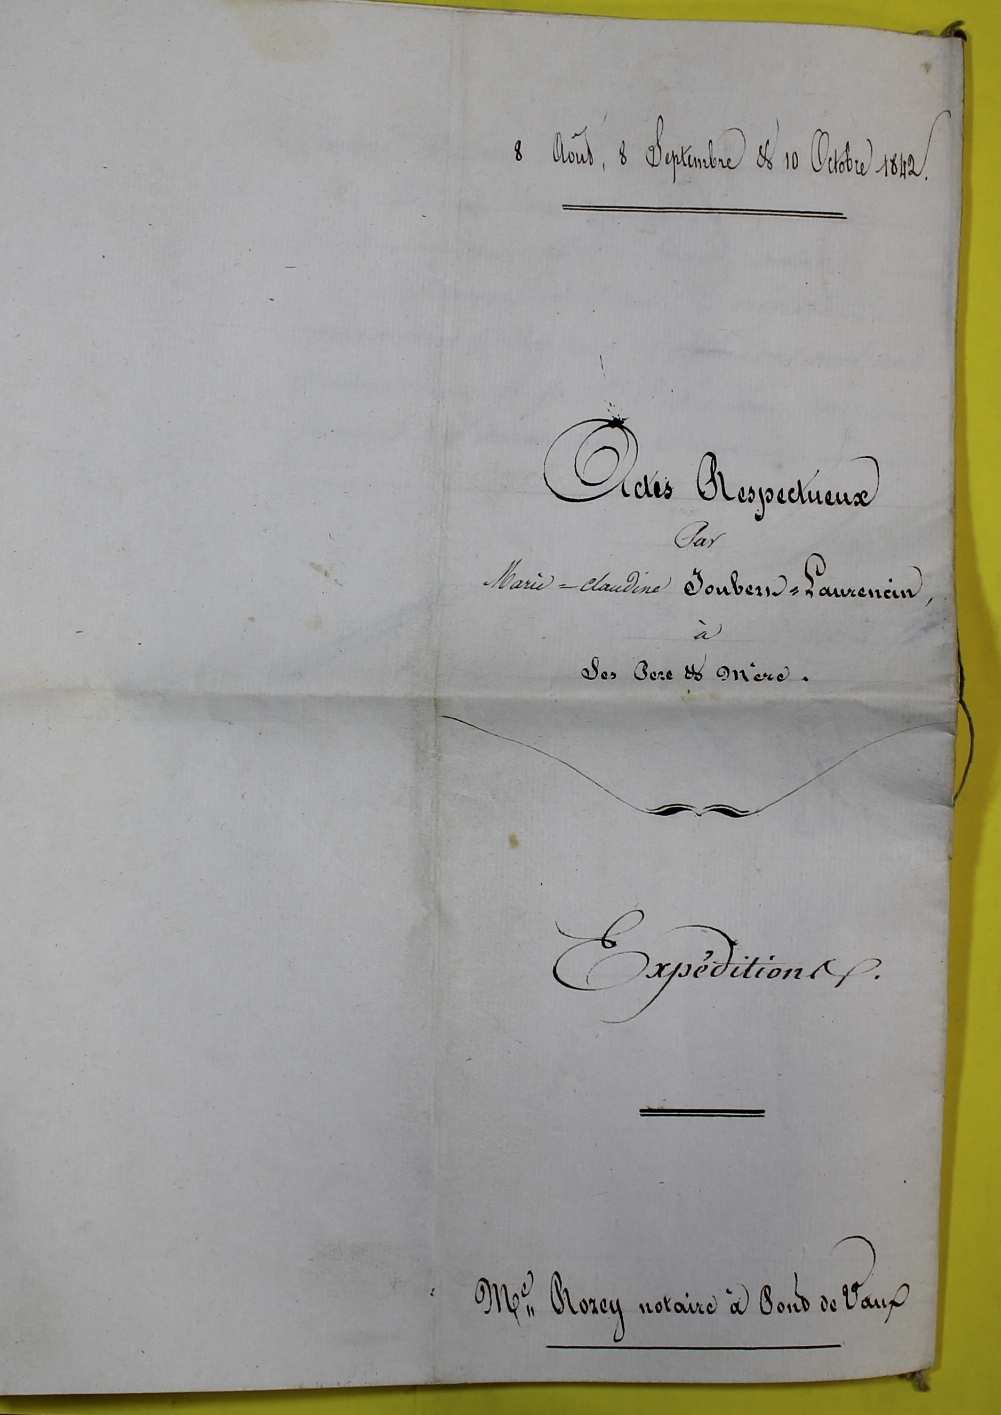 8 Août, 8 Septembre & 10 Octobre 1842.
Actes Respectueux
Par
Marie = Claudine Joubert = Laurencin,
à
Ses Pere & Mère.
Expéditions.
Me Rozey notaire à Pont de Vaux